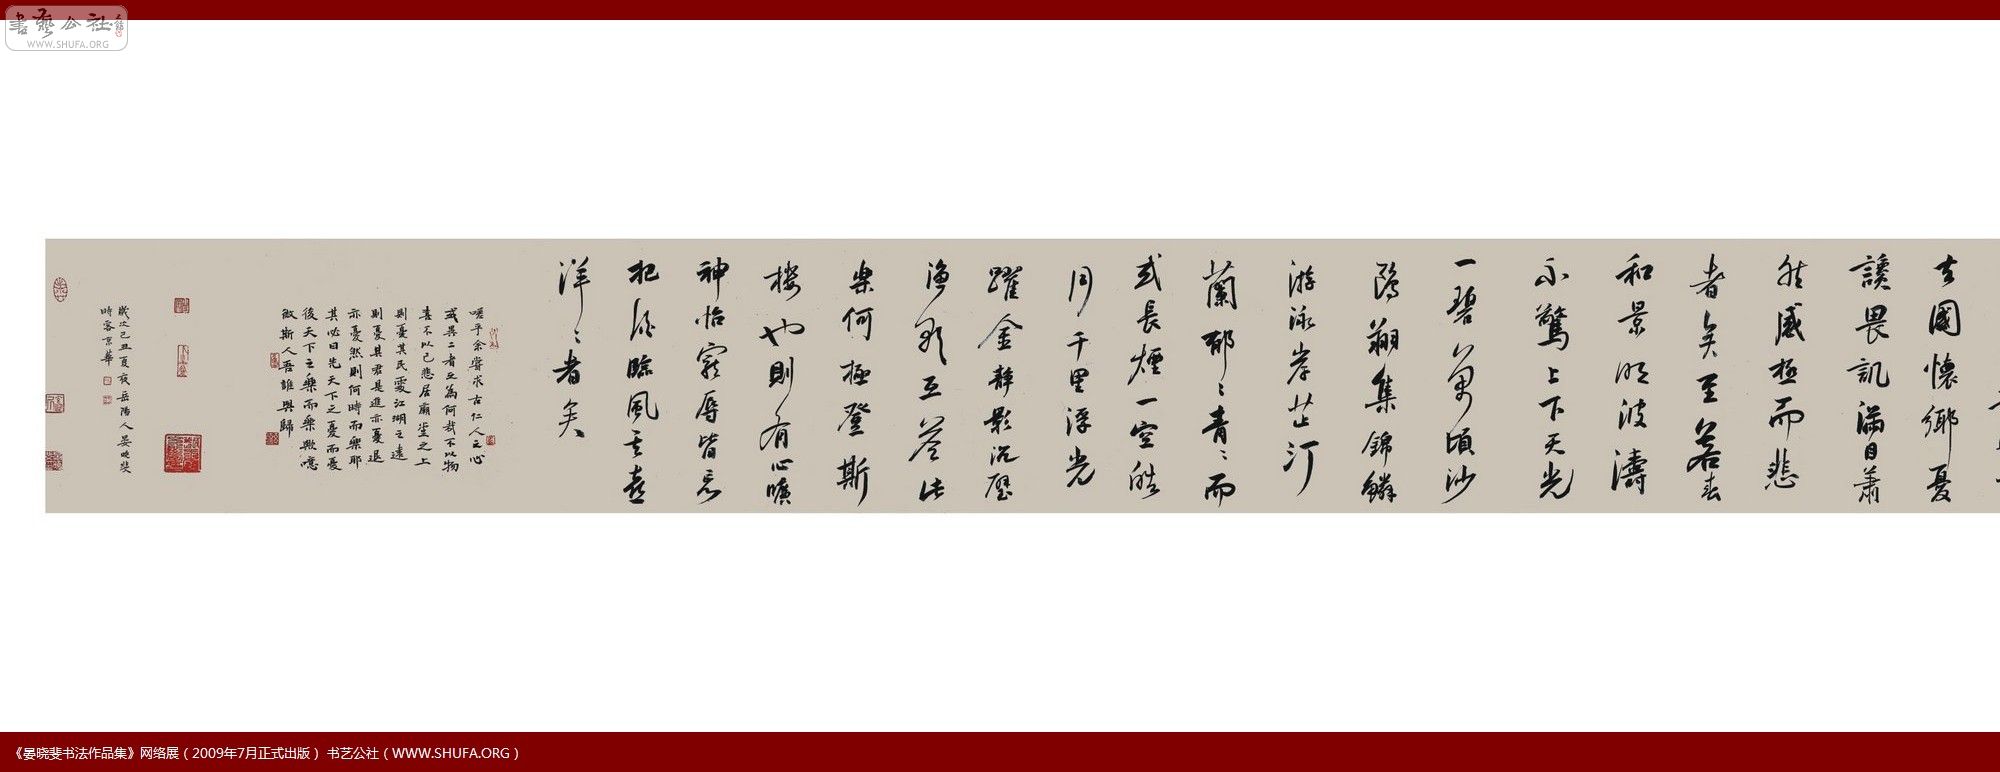 書藝公社
WWW.SHUFA.ORG
去國懷鄉憂
讒畏譏滿目蕭
然感極而悲
者矣至若春
和景明波濤
不驚上下天光
一碧萬頃沙
鷗翔集錦鱗
游泳岸芷汀
蘭郁〻青〻而
或長煙一空皓
月千里浮光
躍金靜影沉璧
漁歌互答此
樂何極登斯
樓也則有心曠
神怡寵辱皆忘
把酒臨風其喜
洋〻者矣
嗟乎余嘗求古仁人之心
或異二者之為何哉不以物
喜不以己悲居廟堂之上
則憂其民處江湖之遠
則憂其君是進亦憂退
亦憂然則何時而樂耶
其必曰先天下之憂而憂
後天下之樂而樂歟噫
微斯人吾誰與歸
歲次己丑夏夜岳陽人晏曉斐
時客京華
《晏晓斐书法作品集》网络展（2009年7月正式出版） 书艺公社（WWW.SHUFA.ORG）